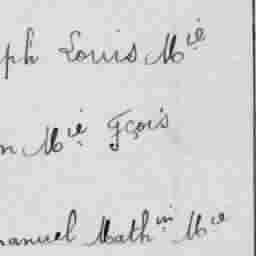 ph Louis Mie
n Mie Fçois
anuel Mathin Mie